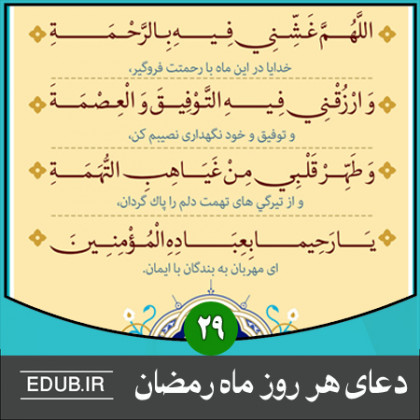 اللَّهُمَّ غَشِّنِي فِيهِ بِالرَّحْمَةِ
خدایا در این ماه با رحمتت فروگیر،
وَ ارْزُقْنِي فِيهِ التَّوْفِيقَ وَ الْعِصْمَةَ
و توفیق و خود نگهداری نصیبم کن،
وَ طَهِّرْ قَلْبِي مِنْ غَيَاهِبِ التُّهَمَةِ
و از تیرگي های تهمت دلم را پاك گردان،
يَا رَحِيما بِعِبَادِهِ الْمُؤْمِنِينَ
ای مهربان به بندگان با ایمان.
۲۹
دعای هر روز ماه رمضان
EDUB.IR